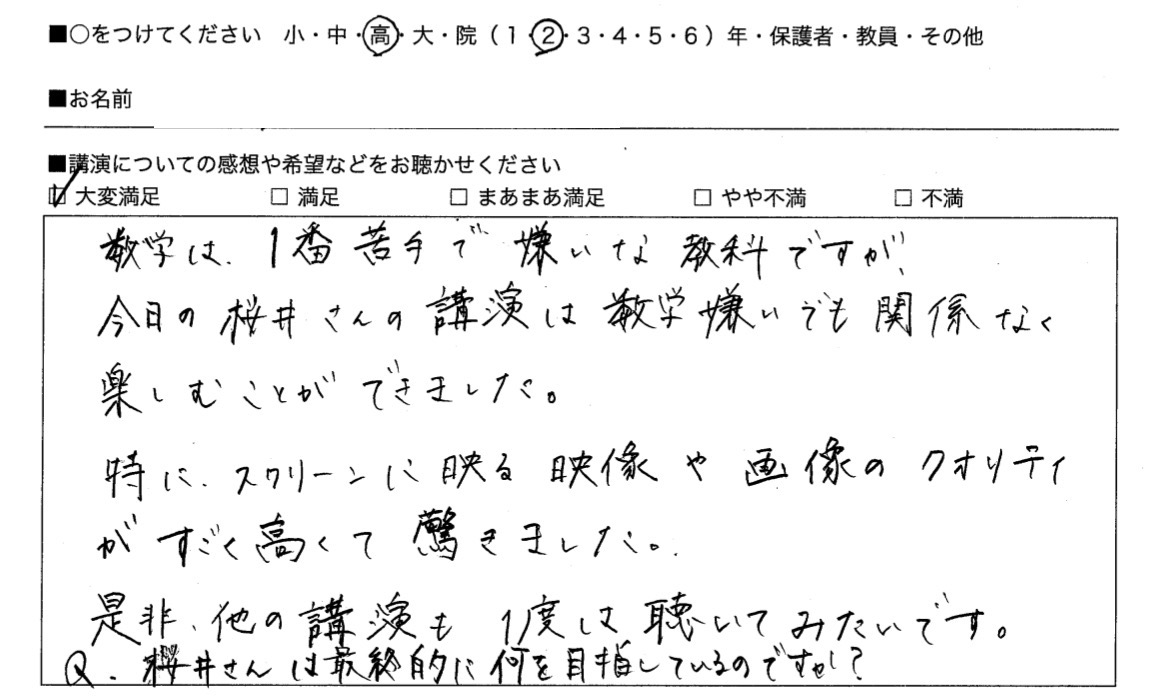 ■○をつけてください　小・中・高・大・院（1・2・3・4・5・6）年・保護者・教員・その他
■お名前
■講演についての感想や希望などをお聴かせください
☑ 大変満足　□ 満足　□ まあまあ満足　□ やや不満　□ 不満
数学は、1番苦手で嫌いな教科ですが、
今日の桜井さんの講演は数学嫌いでも関係なく
楽しむことができました。
特に、スクリーンに映る映像や画像のクオリティ
がすごく高くて驚きました。
是非、他の講演も1度は聴いてみたいです。
Q. 桜井さんは最終的に何を目指しているのですか？